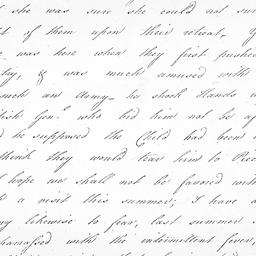 she was sure she could not sur
t of them upon their retreat,
was here when they first pushed
ity, & was much amused with
much an Army_ he shook Hands w
tish Genl. who bid him not be af
d he supposed the Child had been
think they would tear him to Piec
hope we shall not be favored with
a visit this summer; I have a
ny likewise to fear, last summer
harrassed with the intermittent fever,